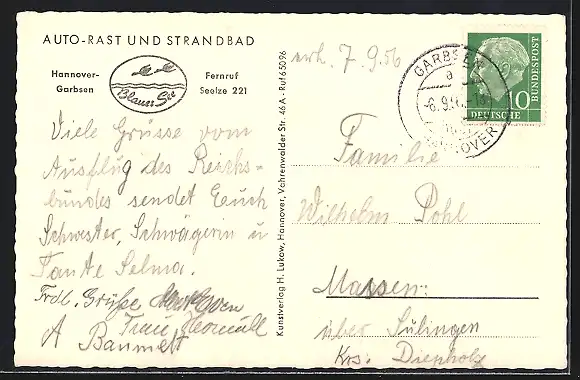 AUTO-RAST UND STRANDBAD
Hannover-
Garbsen
Blauer See
Fernruf
Seelze 221
Viele Grüsse vom
Ausflug des Reichs-
bundes sendet Eeuch
Schwester, Schwägerin u
Tante Selma.
Frdl. Grüße
Frau
A
Kunstverlag H. Lukow, Hannover, Vahrenwalder Str. 46 A - Ruf 65096
erh. 7.9.56
GARBSEN
a
6.9.
HANNOVER
10
DEUTSCHE
BUNDESPOST
Familie
Wilhelm Pohl
Maasen:
über Sulingen
Krs. Diepholz